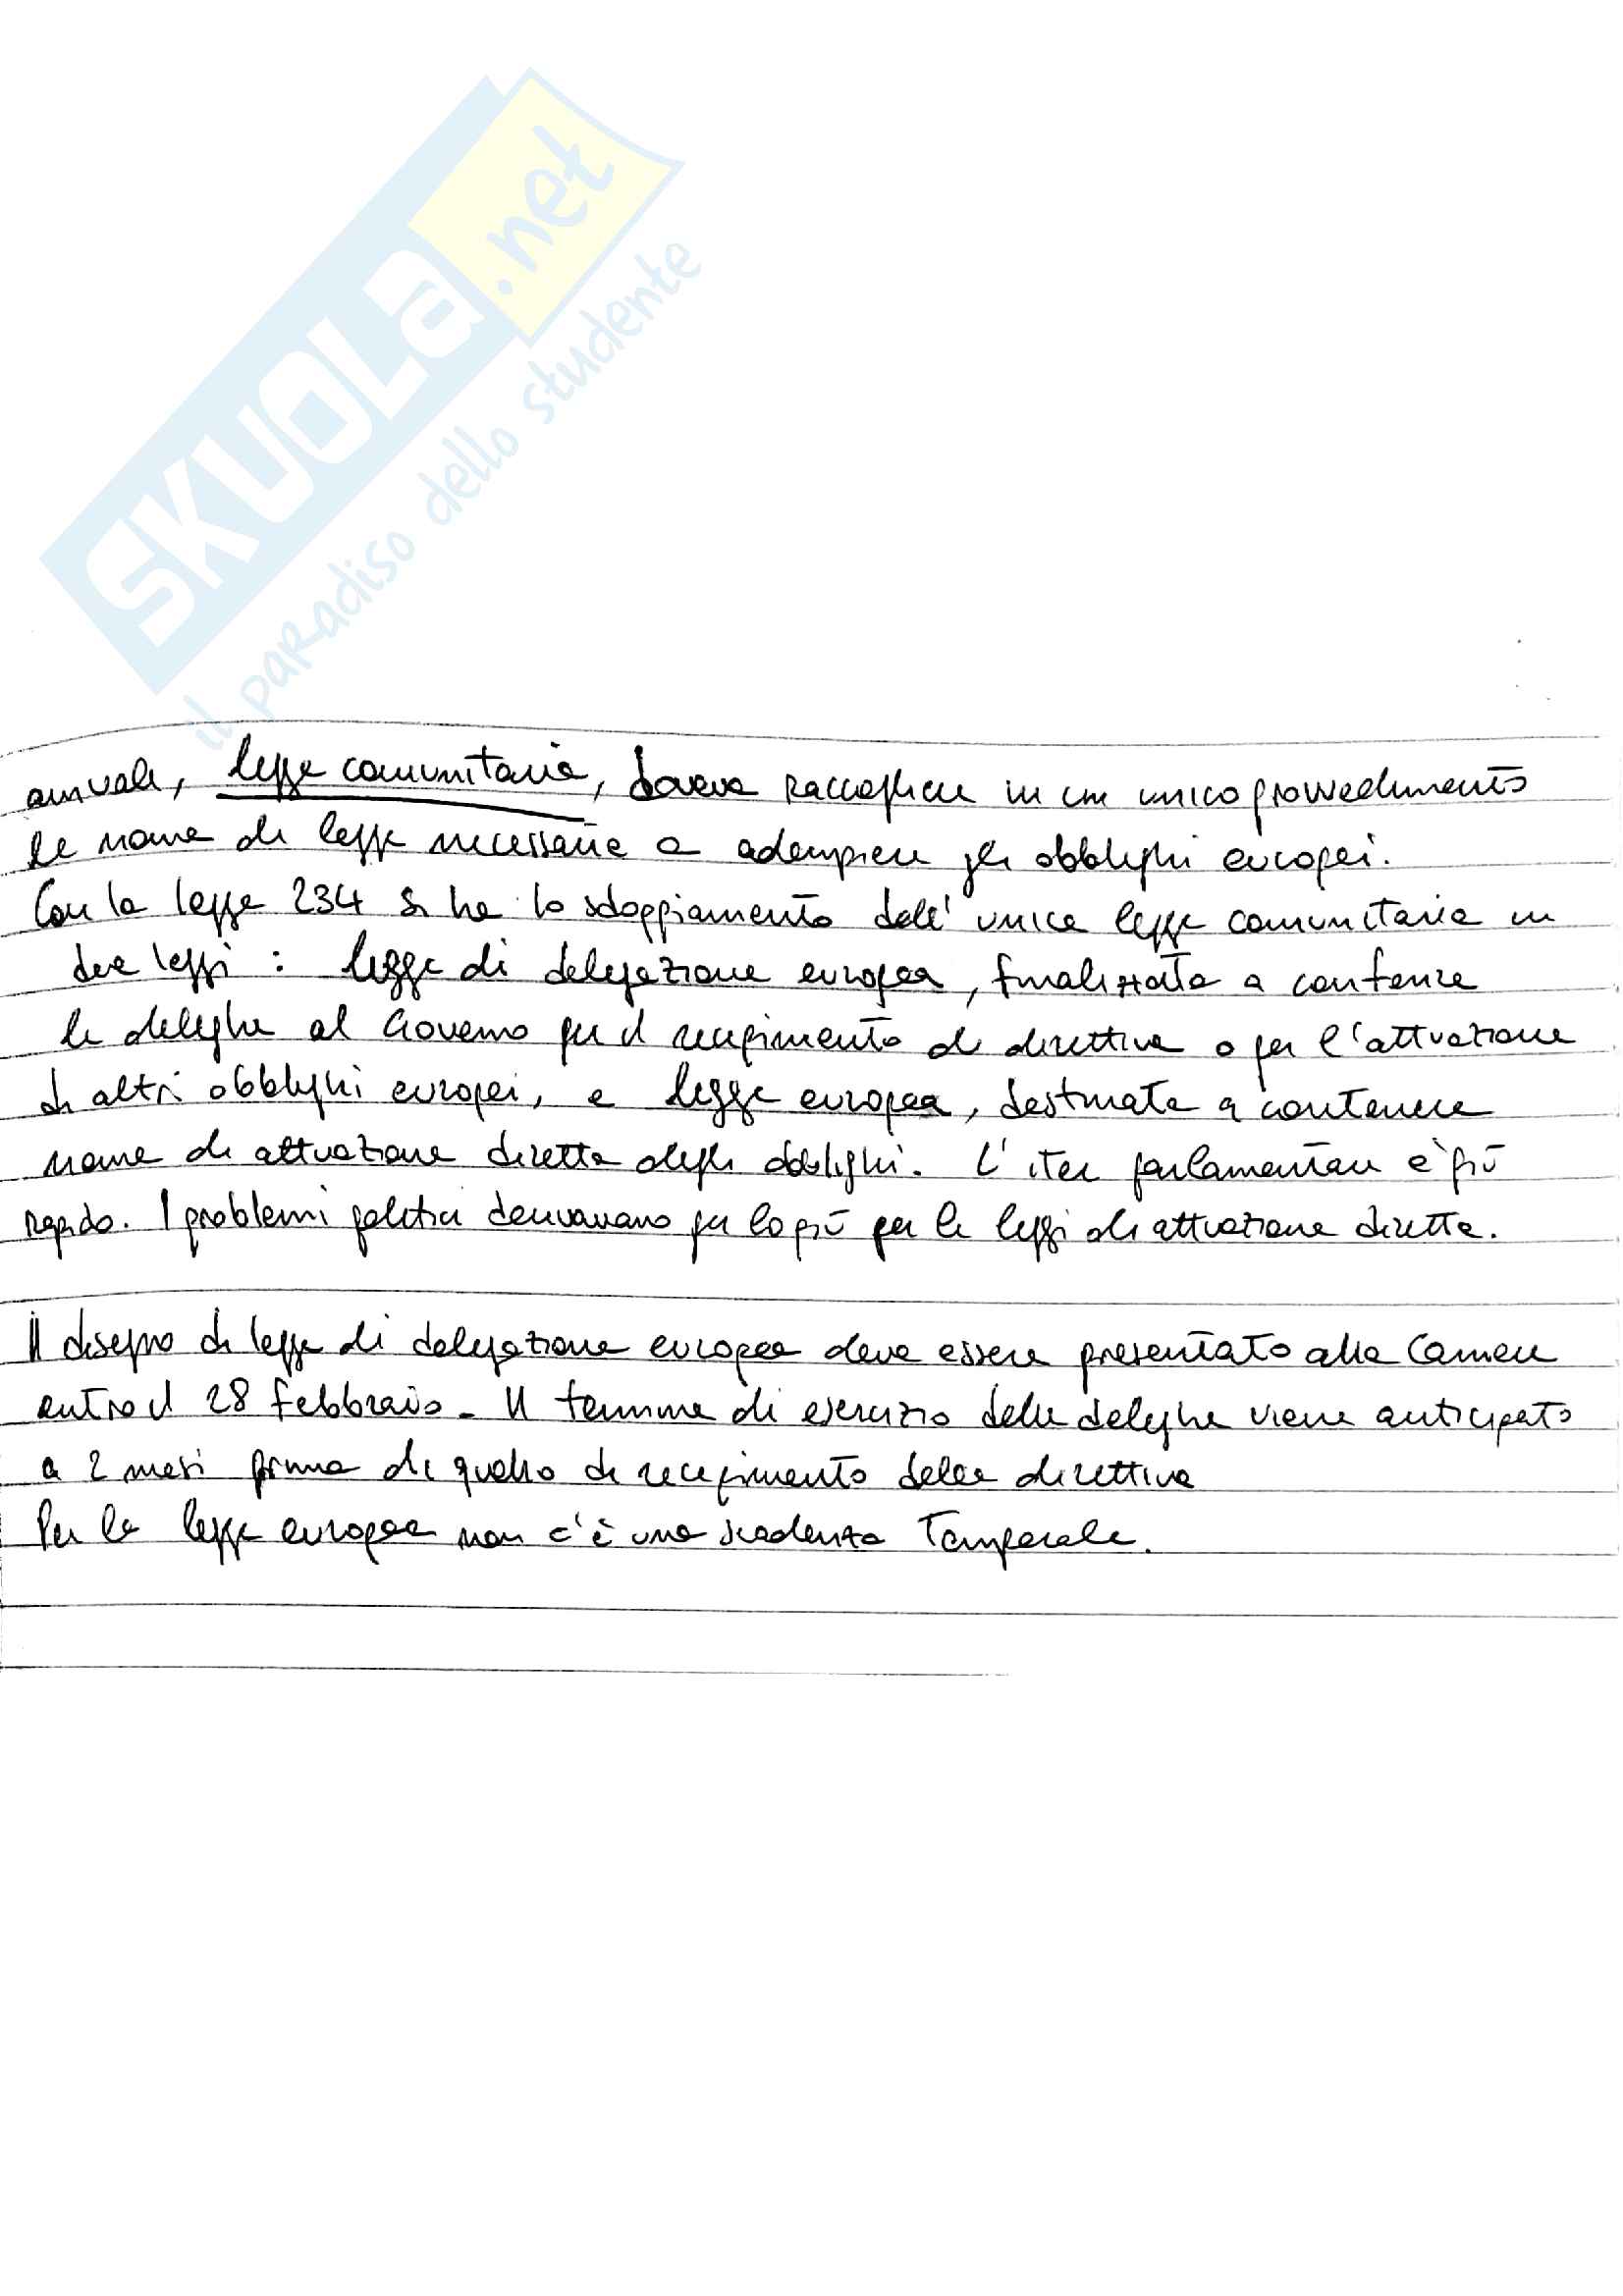 SKUOLA.net
il paradiso dello studente
annuale, legge comunitaria, doveva raccogliere in un unico provvedimento
le norme di legge necessarie a adempiere gli obblighi europei.
Con la legge 234 si ha lo sdoppiamento dell'unica legge comunitaria in
due leggi: legge di delegazione europea, finalizzata a contenere
le deleghe al Governo per il recepimento di direttive o per l'attuazione
di altri obblighi europei, e legge europea, destinata a contenere
norme di attuazione diretta degli obblighi. L'iter parlamentare è più
rapido. I problemi politici derivavano per lo più per le leggi di attuazione diretta.
Il disegno di legge di delegazione europea deve essere presentato alle Camere
entro il 28 febbraio. Il termine di esercizio delle deleghe viene anticipato
a 2 mesi prima di quello di recepimento della direttiva
Per la legge europea non c'è una scadenza temporale.